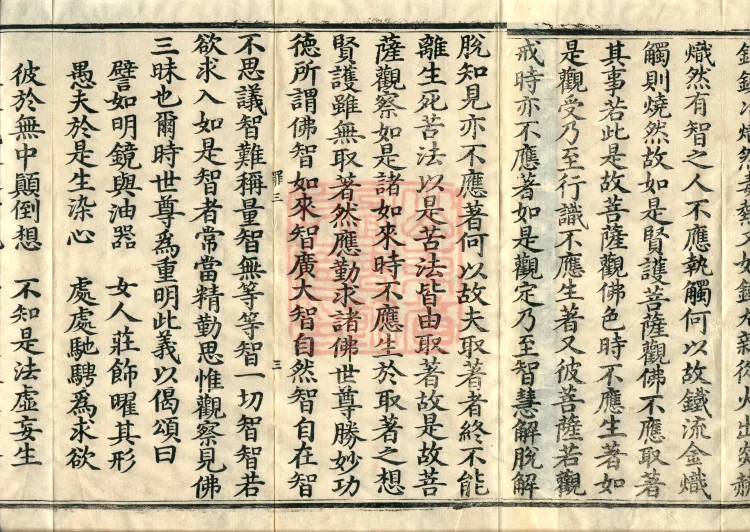 熾然有智之人不應執觸何以故鐵流金熾
觸則燒然故如是賢護菩薩觀佛不應取著
其事若此是故菩薩觀佛色時不應生著如
是觀受乃至行識不應生著又彼菩薩若觀
戒時亦不應著如是觀定乃至智慧解脫解
脫知見亦不應著何以故夫取著者終不能
離生死苦法以是苦法皆由取著故是故菩
薩觀察如是諸如來時不應生於取著之想
賢護雖無取著然應勤求諸佛世尊勝妙功
德所謂佛智如來智廣大智自然智自在智
罪三 三
不思議智難稱量智無等等智一切智智若
欲求入如是智者常當精勤思惟觀察見佛
三昧也爾時世尊為重明此義以偈頌曰
譬如明鏡與油器 女人莊飾曜其形
愚夫於是生染心 處處馳騁為求欲
彼於無中顛倒想 不知是法虛妄生